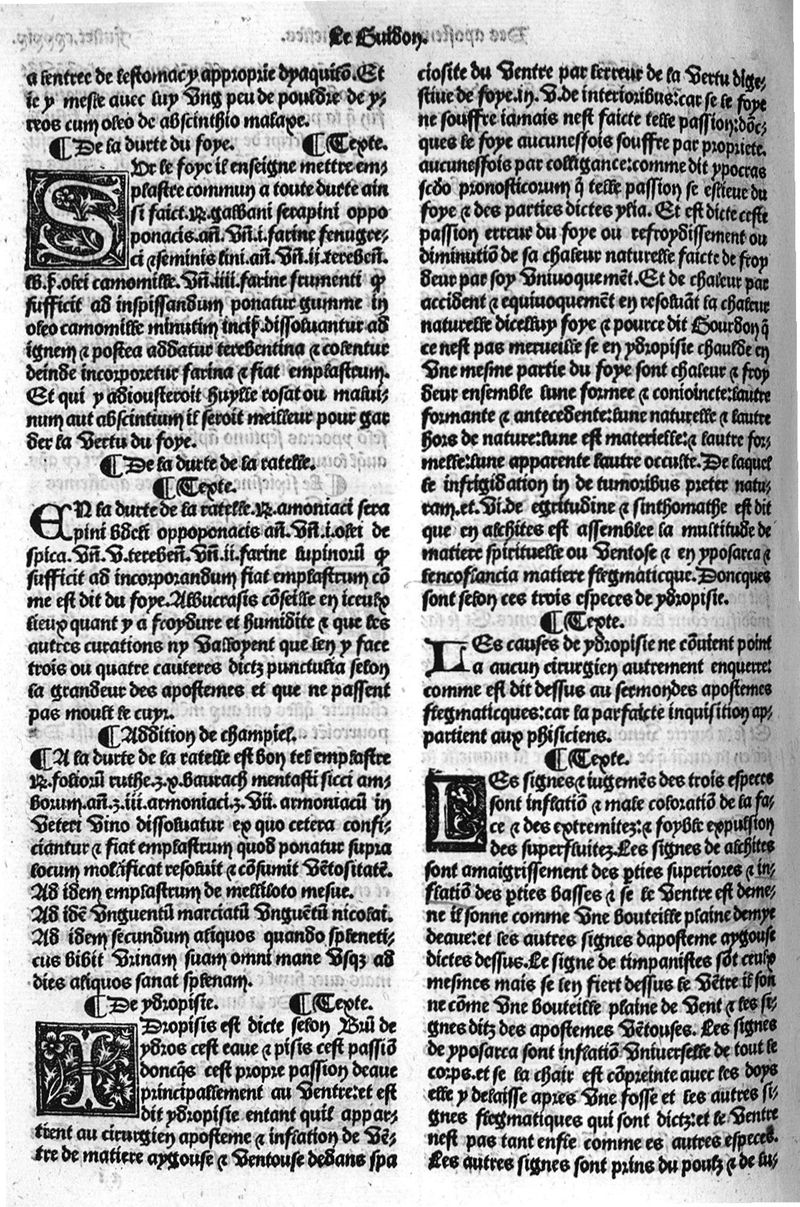 Le Guidon.
a lentree de lestomac y approprie dyaquilõ. Et
ie y mesle avec luy vng peu de pouldre de y⸗
reos cum oleo de abscinthio malaxe.
¶De la durte du foye. ¶Texte.
SUr le foye il enseigne mettre em⸗
plastre commun a toute durte ain
si faict. ℞. galbani serapini oppo
ponacis. añ. Vñ. i. farine fenugre⸗
ci ⁊ seminis lini. añ. Vñ. ii. terebeñ.
olei camomille. Vñ. iiii. farine frumenti ꝙ
sufficit ad inspissandum ponatur gumme in
oleo camomille minutim incis. dissoluantur ad
ignem ⁊ postea addatur terebentina ⁊ colentur
deinde incorporetur farina ⁊ fiat emplastrum.
Et qui y adiousteroit huylle rosat ou malui⸗
num aut abscintium il seroit meilleur pour gar
der la vertu du foye.
¶De la durte de la ratelle.
¶Texte.
EN la durte de la ratelle. ℞. amoniaci sera
pini bdelii oppoponacis añ. Vñ. i. olei de
spica. Vñ. v. terebeñ. Vñ. ii. farine lupinorũ ꝙ
sufficit ad incorporandum fiat emplastrum cõ
me est dit du foye. Albucrasis cõseille en iceulx
lieux quant y a froydure et humidite ⁊ que les
autres curations ny valloyent que len y face
trois ou quatre cauteres dictz punctulia selon
la grandeur des apostemes et que ne passent
pas moult le cuyr.
¶Addition de champiel.
¶A la durte de la ratelle est bon tel emplastre
℞. foliorũ ruthe. ʒ. x. baurach mentastri sicci am⸗
borum. añ. ʒ. iii. armoniaci. ʒ. vii. armoniacũ in
veteri vino dissoluatur ex quo cetera confi⸗
ciantur ⁊ fiat emplastrum quod ponatur supra
locum molificat resoluit ⁊ cõsumit vẽtositatẽ.
Ad idem emplastrum de melliloto mesue.
Ad idẽ vnguentũ marciatũ vnguẽtũ nicolai.
Ad idem secundum aliquos quando spleneti⸗
cus bibit vrinam suam omni mane vsqz ad
dies aliquos sanat splenam.
¶De ydropisie. ¶Texte.
IDropisis est dicte selon Brũ de
ydros cest eaue ⁊ pisis cest passiõ
doncq̃s cest propre passion deaue
principallement au ventre: et est
dit ydropisie entant quil appar⸗
tient au cirurgien aposteme ⁊ inflation de vẽ⸗
tre de matiere aygouse ⁊ ventouse dedans spa
ciosite du ventre par lerreur de la vertu dige⸗
stiue de foye. in. v. de interioribus: car se le foye
ne souffre iamais nest faicte telle passion: dõc⸗
ques le foye aucunessois souffre par propriete.
aucunessois par colligance: comme dit ypocras
scdo pronosticorum q̃ telle passion se eslieue du
foye ⁊ des parties dictes ylia. Et est dicte ceste
passion erreur du foye ou refroydissement ou
diminutiõ de sa chaleur naturelle faicte de froy
deur par soy vniuoquemẽt. Et de chaleur par
accident ⁊ equiuoquemẽt en resoluãt la chaleur
naturelle dicelluy foye ⁊ pource dit Gourdon q̃
ce nest pas merueille se en ydropisie chaulde en
vne mesme partie du foye sont chaleur ⁊ froy
deur ensemble lune formee ⁊ conioincte: lautre
formante ⁊ antecedente: lune naturelle ⁊ lautre
hors de nature: lune est materielle: ⁊ lautre for⸗
melle: lune apparente lautre occulte. De laquel
le infrigidation in de tumoribus preter natu⸗
ram. et. vi. de egritudine ⁊ sinthomathe est dit
que en alchites est assemblee la multitude de
matiere spirituelle ou ventose ⁊ en yposarca ⁊
lencoflancia matiere flegmaticque. Doncques
sont selon ces trois especes de ydropisie.
¶Texte.
LEs causes de ydropisie ne cõuient point
a aucun cirurgien autrement enquerre:
comme est dit dessus au sermon des apostemes
flegmaticques: car la parfaicte inquisition ap⸗
partient aux phisiciens.
¶Texte.
LEs signes ⁊ iugemẽs des trois especes
sont inflatiõ ⁊ male coloratiõ de la fa⸗
ce ⁊ des extremitez: ⁊ foyble expulsion
des superfluitez. Les signes de alchites
sont amaigrissement des ꝑties superiores ⁊ in⸗
flatiõ des ꝑties basses ⁊ se le ventre est deme⸗
ne il sonne comme vne bouteille plaine demye
deaue: et les autres signes daposteme aygouse
dictes dessus. Le signe de timpanistes sõt ceulx
mesmes mais se len fiert dessus le vẽtre il son
ne cõme vne bouteille plaine de vent ⁊ les si⸗
gnes ditz des apostemes vẽtouses. Les signes
de yposarca sont inflatiõ vniuerselle de tout le
corps. et se la chair est cõpreinte avec les doys
elle y delaisse apres vne fosse et les autres si⸗
gnes flegmatiques qui sont dictz: et le ventre
nest pas tant enfle comme es autres especes.
Les autres signes sont prins du poulz ⁊ de lu⸗